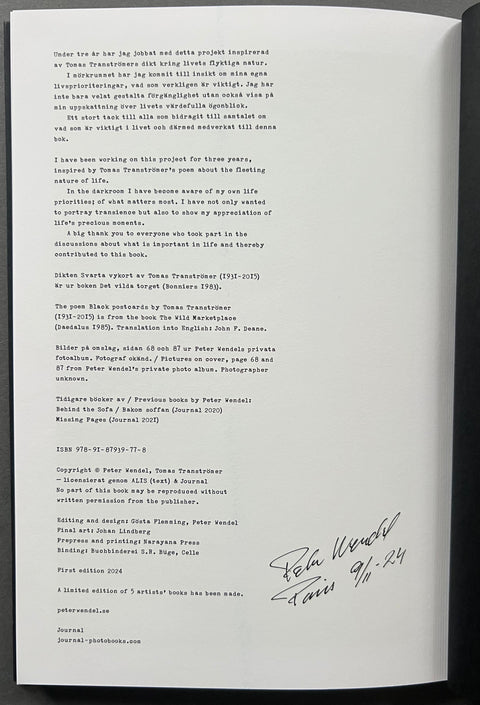 Under tre år har jag jobbat med detta projekt inspirerad
av Tomas Tranströmers dikt kring livets flyktiga natur.
I mörkrummet har jag kommit till insikt om mina egna
livsprioriteringar, vad som verkligen är viktigt. Jag har
inte bara velat gestalta förgänglighet utan också visa på
min uppskattning över livets värdefulla ögonblick.
Ett stort tack till alla som bidragit till samtalet om
vad som är viktigt i livet och därmed medverkat till denna
bok.
I have been working on this project for three years,
inspired by Tomas Tranströmer's poem about the fleeting
nature of life.
In the darkroom I have become aware of my own life
priorities; of what matters most. I have not only wanted
to portray transience but also to show my appreciation of
life's precious moments.
A big thank you to everyone who took part in the
discussions about what is important in life and thereby
contributed to this book.
Dikten Svarta vykort av Tomas Tranströmer (1931-2015)
är ur boken Det vilda torget (Bonniers 1983).
The poem Black postcards by Tomas Tranströmer
(1931-2015) is from the book The Wild Marketplace
(Daedalus 1985). Translation into English: John F. Deane.
Bilder på omslag, sidan 68 och 87 ur Peter Wendels privata
fotoalbum. Fotograf okänd. / Pictures on cover, page 68 and
87 from Peter Wendel's private photo album. Photographer
unknown.
Tidigare böcker av / Previous books by Peter Wendel:
Behind the Sofa / Bakom soffan (Journal 2020)
Missing Pages (Journal 2021)
ISBN 978-91-87939-77-8
Copyright © Peter Wendel, Tomas Tranströmer
— licensierat genom ALIS (text) & Journal
No part of this book may be reproduced without
written permission from the publisher.
Editing and design: Gösta Flemming, Peter Wendel
Final art: Johan Lindberg
Prepress and printing: Narayana Press
Binding: Buchbinderei S.R. Büge, Celle
First edition 2024
A limited edition of 5 artists' books has been made.
peterwendel.se
Journal
journal-photobooks.com
Peter Wendel
Paris 9/11-24